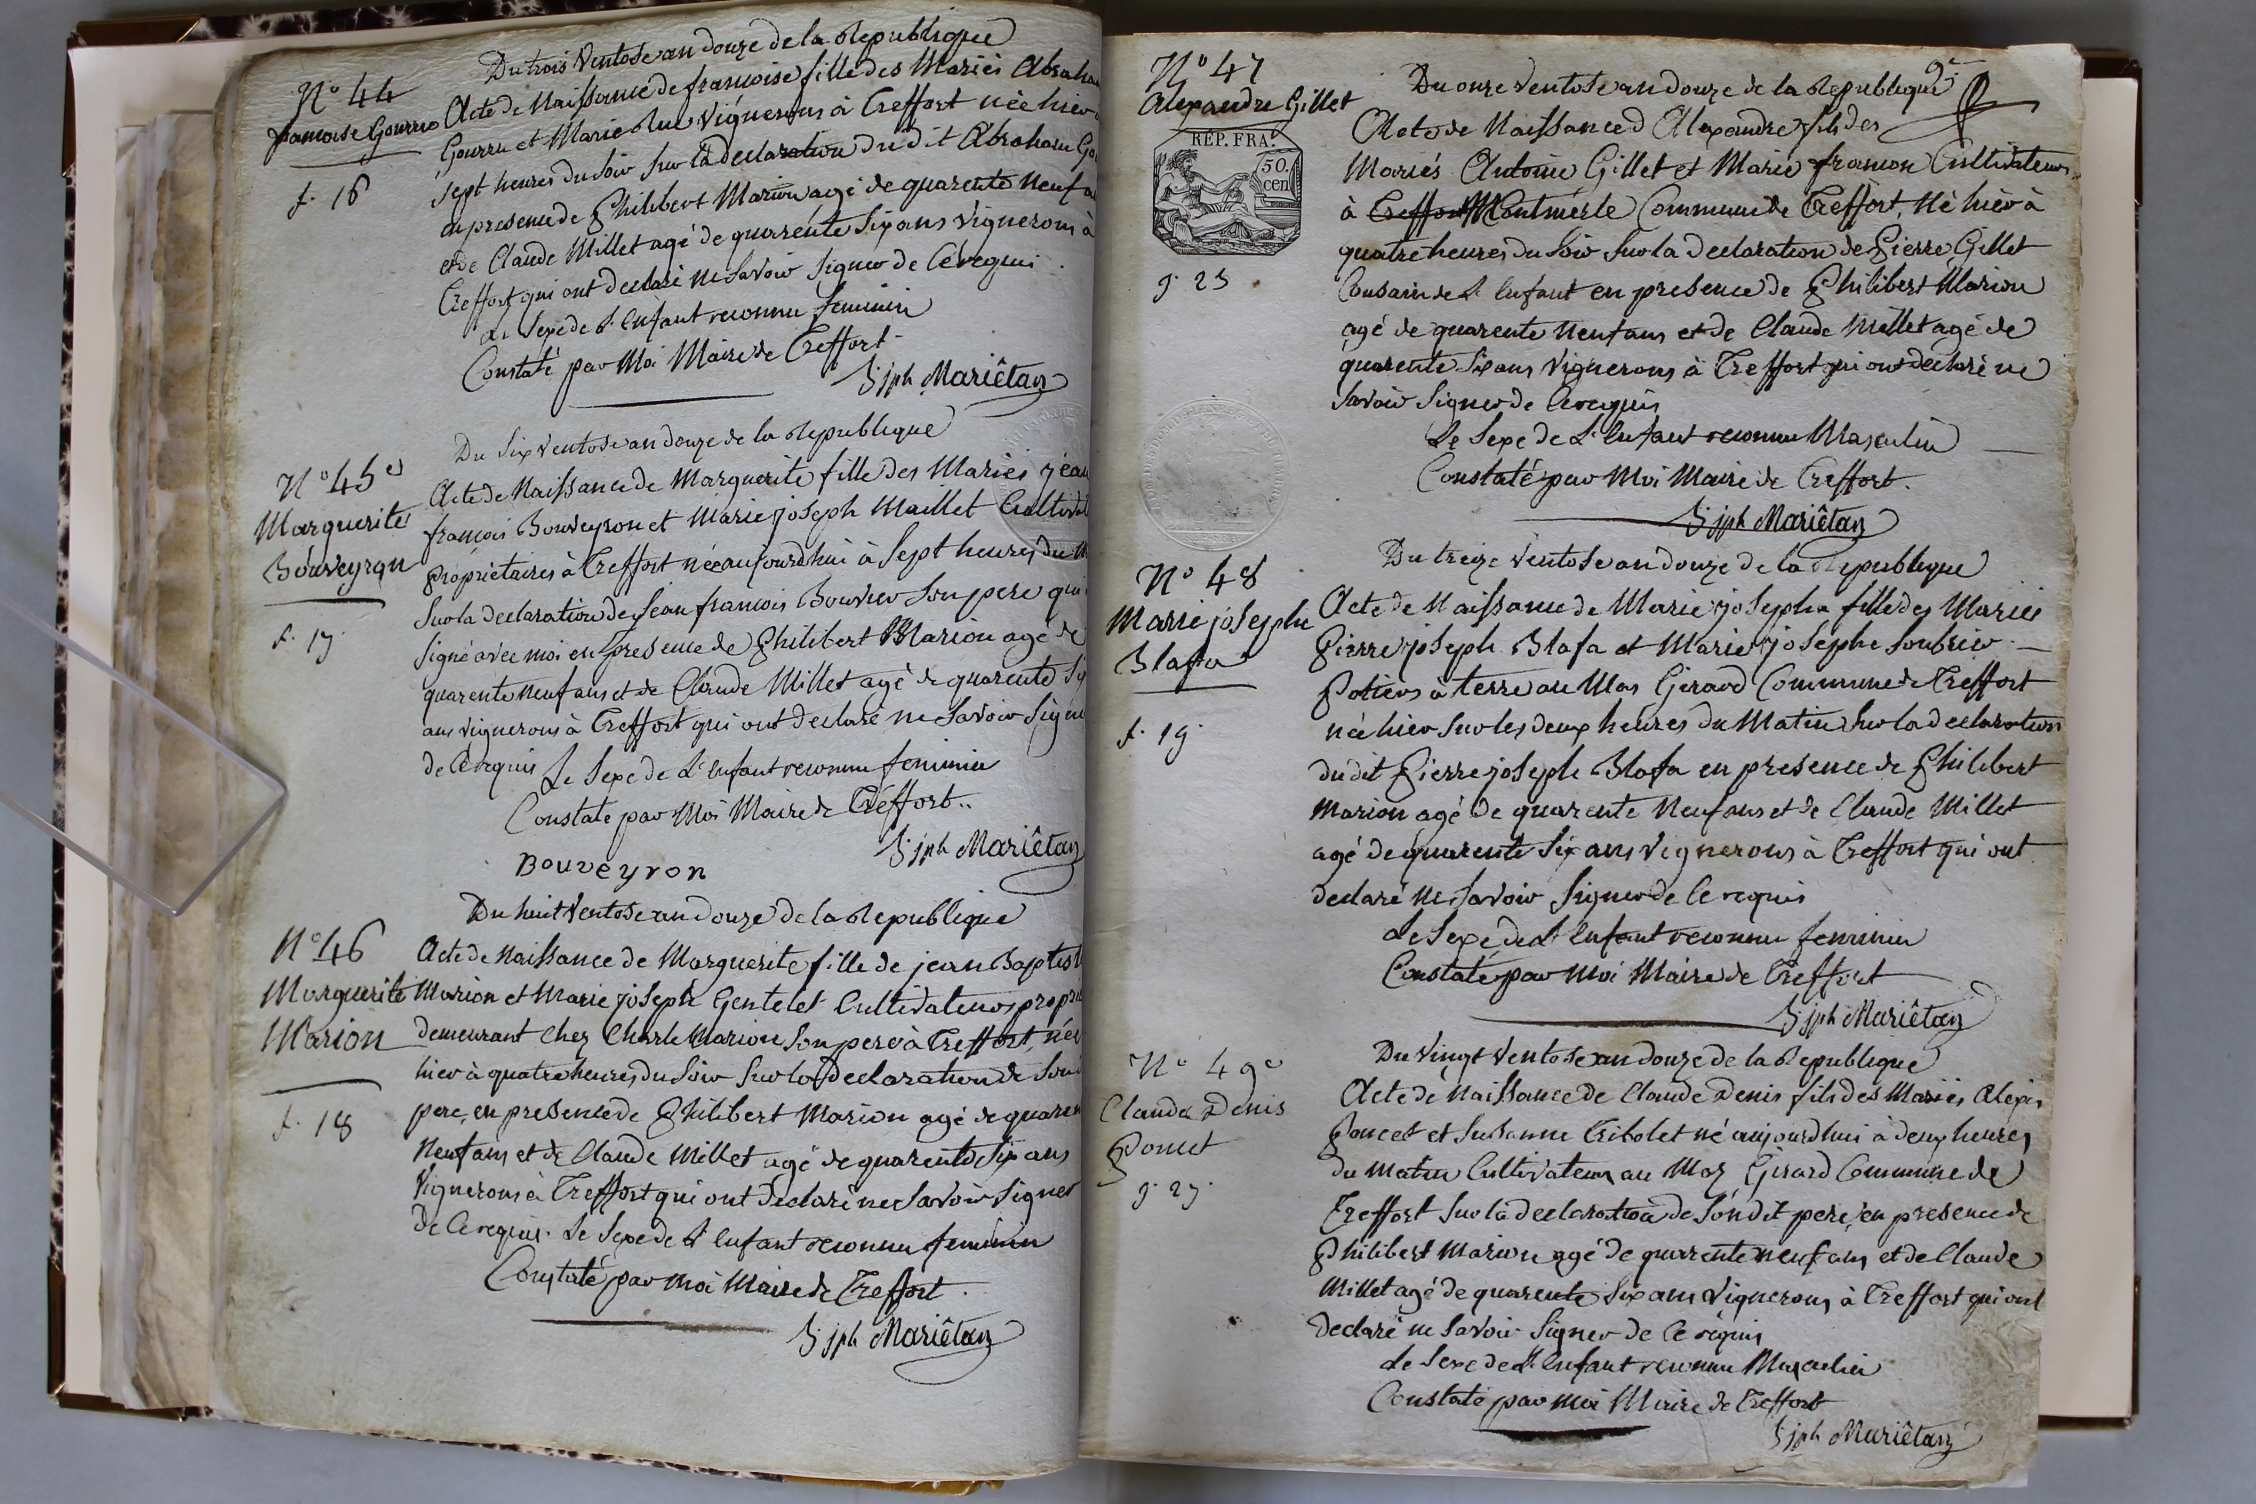 Du trois Ventose an douze de la Republique
N° 44
francoise Gourru
f. 16
Acte de Naissance de francoise fille des Mariés Abraha
Gourru et Marie Rue Vignerons à Treffort née hier
Sept heures du Soir Sur la declaration du dit Abraham Go
en presence de Philibert Marion agé de quarente Neuf a
et de Claude Millet agé de quarente Six ans Vignerons à
Treffort qui ont declaré ne Savoir Signer de Ce requis
Le Sexe de L'enfant reconnu feminin
Constaté par Moi Maire de Treffort
Jph Mariêtan
Du Six Ventose an douze de la Republique
N° 45e
Marguerite
Bouveyron
f. 17
Acte de Naissance de Marguerite fille des Mariés jean
francois Bouveyron et Marie joseph Maillet Cultivat
Propriétaires à Treffort née aujourd'hui à Sept heures du M
Sur la declaration de Jean francois Son pere qui
Signé avec moi en presence de Philibert Marion agé de
quarente neuf ans et de Claude Millet agé de quarente Si
ans vignerons à Treffort qui ont declaré ne Savoir Signe
de Ce requis Le Sexe de L'enfant reconnu feminin
Constaté par Moi Maire de Treffort
Jph Mariêtan
Bouveyron
Du huit Ventose an douze de la Republique
N° 46
Marguerite
Marion
f. 18
Acte de Naissance de Marguerite fille de jean Baptist
Marion et Marie joseph Gentelet Cultivateurs propri
demeurant Chez Charle Marion Son pere à Treffort, née
hier à quatre heures du Soir Sur la declaration de Son
pere, en presence de Philibert Marion agé de quaren
Neuf ans et de Claude Millet agé de quarente Six ans
Vignerons à Treffort qui ont declaré ne Savoir Signer
de Ce requis. Le Sexe de L'enfant reconnu feminin
Constaté par Moi Maire de Treffort
Jph Mariêtan
N° 47
Alexandre Gillet
RÉP. FRA.
50.
cen
g. 25
Du onze Ventose an douze de la Republique
Acte de Naissance d'Alexandre fils des
Mariés Antoine Gillet et Marie francon Cultivateurs
à Treffort Montmerle Commune de Treffort, Né hier à
quatre heures du Soir Sur la declaration de Pierre Gillet
Cousain de L'enfant en presence de Philibert Marion
agé de quarente Neuf ans et de Claude Millet agé de
quarente Six ans Vignerons à Treffort qui ont declaré ne
Savoir Signer de Ce requis
Le Sexe de L'enfant reconnu Masculin
Constaté par Moi Maire de Treffort.
Jph Mariêtan
Du treize Ventose an douze de la Republique
N° 48
Marie josephe
Blafa
f. 19
Acte de Naissance de Marie josephe fille des Mariés
Pierre joseph Blafa et Marie josephe Soubrier
Potiers à terre au Mas Girard Commune de Treffort
née hier Sur les deux heures du Matin Sur la declaration
du dit Pierre joseph Blafa en presence de Philibert
Marion agé de quarente Neuf ans et de Claude Millet
agé de quarente Six ans Vignerons à Treffort qui ont
declaré ne Savoir Signer de Ce requis
Le Sexe de L'enfant reconnu feminin
Constaté par Moi Maire de Treffort
Jph Mariêtan
Du Vingt Ventose an douze de la Republique
N° 49e
Claude Denis
Poncet
g. 27
Acte de Naissance de Claude Denis fils des Mariés Alexis
Poncet et Susanne Tribolet né aujourd'hui à deux heures
du Matin Cultivateurs au Mas Girard Commune de
Treffort Sur la declaration de Son dit pere, en presence de
Philibert Marion agé de quarente neuf ans et de Claude
Millet agé de quarente Six ans Vignerons à Treffort qui ont
declaré ne Savoir Signer de Ce requis
Le Sexe de L'enfant reconnu Masculin
Constaté par moi Maire de Treffort
Jph Mariêtan